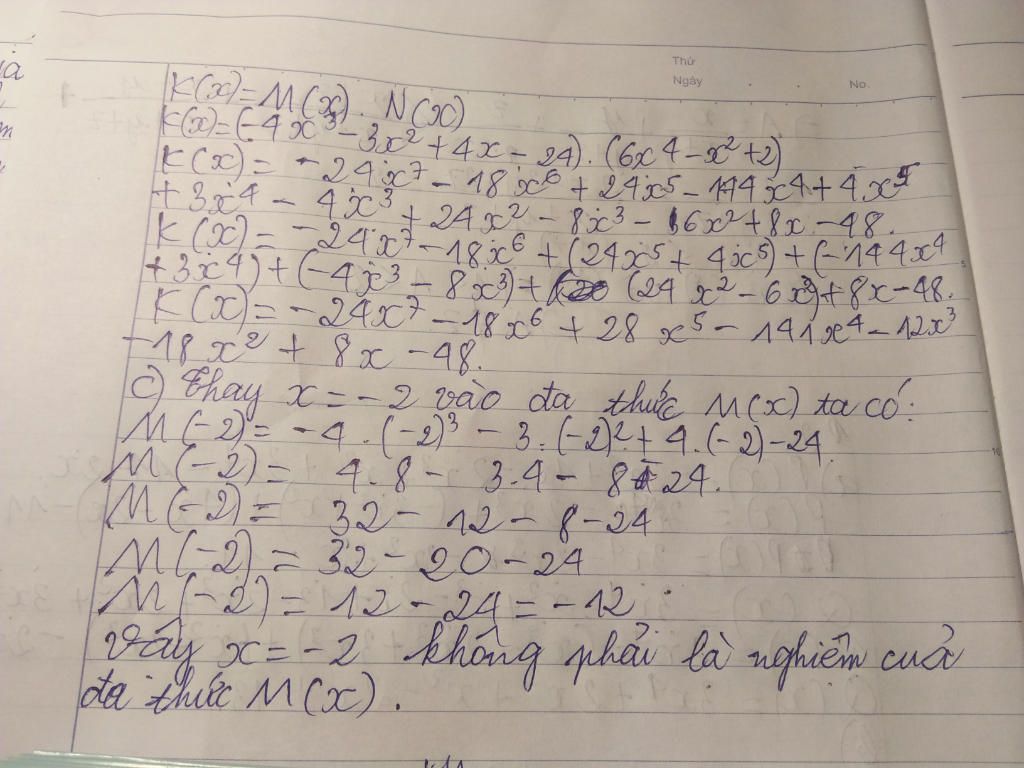 Thứ
Ngày
No.
K(x) = M(x) . N(x)
K(x) = (-4x³ - 3x² + 4x - 24) . (6x4 - x² + 2)
K(x) = - 24x⁷ - 18x⁶ + 24x⁵ - 144x⁴ + 4x⁵
+ 3x⁴ - 4x³ + 24x² - 8x³ - 6x² + 8x - 48.
K(x) = - 24x⁷ - 18x⁶ + (24x⁵ + 4x⁵) + (-144x⁴
+ 3x⁴) + (-4x³ - 8x³) + (24x² - 6x²) + 8x - 48.
K(x) = - 24x⁷ - 18x⁶ + 28x⁵ - 141x⁴ - 12x³
- 18x² + 8x - 48.
c) Thay x = -2 vào đa thức M(x) ta có:
M(-2) = -4 . (-2)³ - 3 . (-2)² + 4 . (-2) - 24.
M(-2) = 4.8 - 3.4 - 8 - 24.
M(-2) = 32 - 12 - 8 - 24
M(-2) = 32 - 20 - 24
M(-2) = 12 - 24 = -12.
Vậy x = -2 không phải là nghiệm cuả
đa thức M(x).